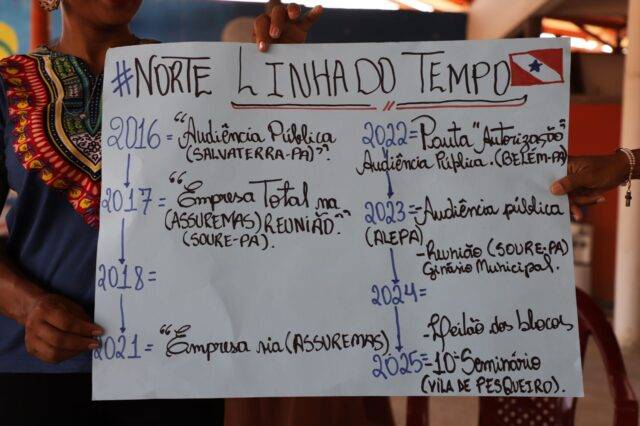 #NORTE LINHA DO TEMPO
2016 = "Audiência Pública
(SALVATERRA-PA)".
2017 = "Empresa Total na
(ASSUREMAS) REUNIÃO."
(SOURE-PA).
2018 =
2021 = "Empresa via (ASSUREMAS)
2022 = Pauta "Autorização"
Audiência Pública. (BELÉM-PA)
2023 = Audiência pública
(ALEPA)
-Reunião (SOURE-PA)
Ginásio Municipal.
2024 =
-Leilão dos blocos
2025 = -10º Seminário
(VILA DE PESQUEIRO).